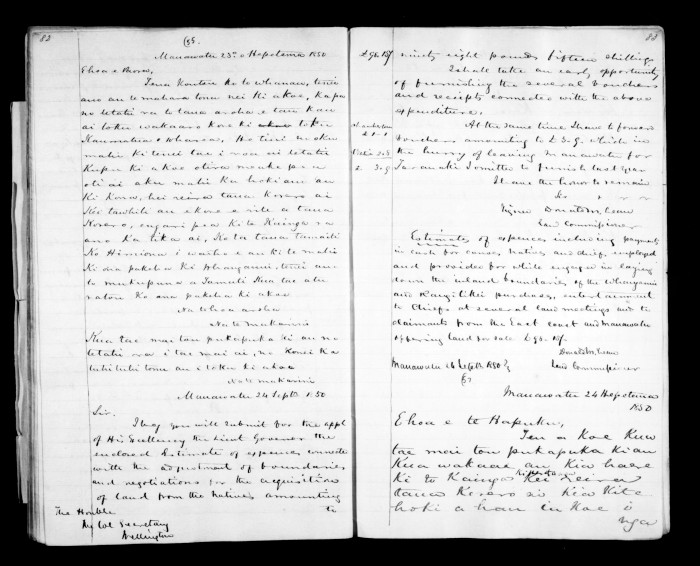 82
55.
Manawatu 23rd Hepetema 1850
Ehoa e
Tena koutou ko to whanau, tenei
ano au te mahara tonu nei ki a koe, kapu
no letatu ra te tana aroha e tou kau
ai toku wakaaro kore ki toku
Kaumatua i wharoa, He tini no oku
mahi ki tenei tau i roa ai letatu
kupu ki a koe otira meake pea
oti ai aku mahi ka hoki ano au
ki kona, hei reira taua korero ai
Kei tawhiti au ekore e rite a taua
korero, engari pea ki te kainga ra
ano ka tika ai, Ko ta taua tamaiti
Ko Himiona i waiho e au ki te mahi
ki ona pakeha ki Whanganui, tenei ano
te mokupuna a Tamati kua tae atu
ratou ko ona pakeha ki a koe
Na to hoa aroha
Na te makarini
Kua tae mai tou pukapuka ki au no
letatu ra i tae mai ai, no konei ka
tuhituhi tonu au i toku ki a koe
Na te makarini
Manawatu 24 Septr 1850
Sir.
I beg you will submit for the appl
of His Excellency the Lieut Governor the
enclosed Estimate of expences connected
with the adjustment of boundaries
and negotiations for the acquisition
of land from the Natives amounting
to
The Honble
The Col Secretary
Wellington
83
£98.15/ ninety eight pounds fifteen shillings
I shall take an early opportunity
of furnishing the several Vouchers
and receipts connected with the above
expenditure.
At the same time I have to forward
Vouchers amounting to £3.9. which in
the hurry of leaving Manawatu for
Taranaki I omitted to furnish last year
I have the honor to remain
Sir
Signed Donald McLean
Land Commissioner
Estimates of expences including payments
in cash for canoes, natives and chiefs, employed
and provided for while engaged in laying
down the inland boundaries of the Whanganui
and Rangitikei purchase, entertainment
to Chiefs at several land meetings and to
claimants from the East coast and Manawatu
opposing land for sale £98.15/.
Donald McLean
Land Commissioner
Manawatu 24 Septr 1850
Manawatu 24 Hepetema
1850
Ehoa e te Hapuku,
Tena Koe Kua
tae mai tou pukapuka ki au
Kua wakaae au kia haere
ki to Kainga kei reira
taua Korero ai kia kite
hoki a hau in koe i
nga